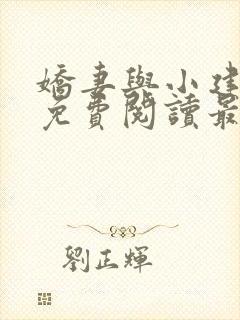 嬌妻與小建
免費閱讀最
劉正輝